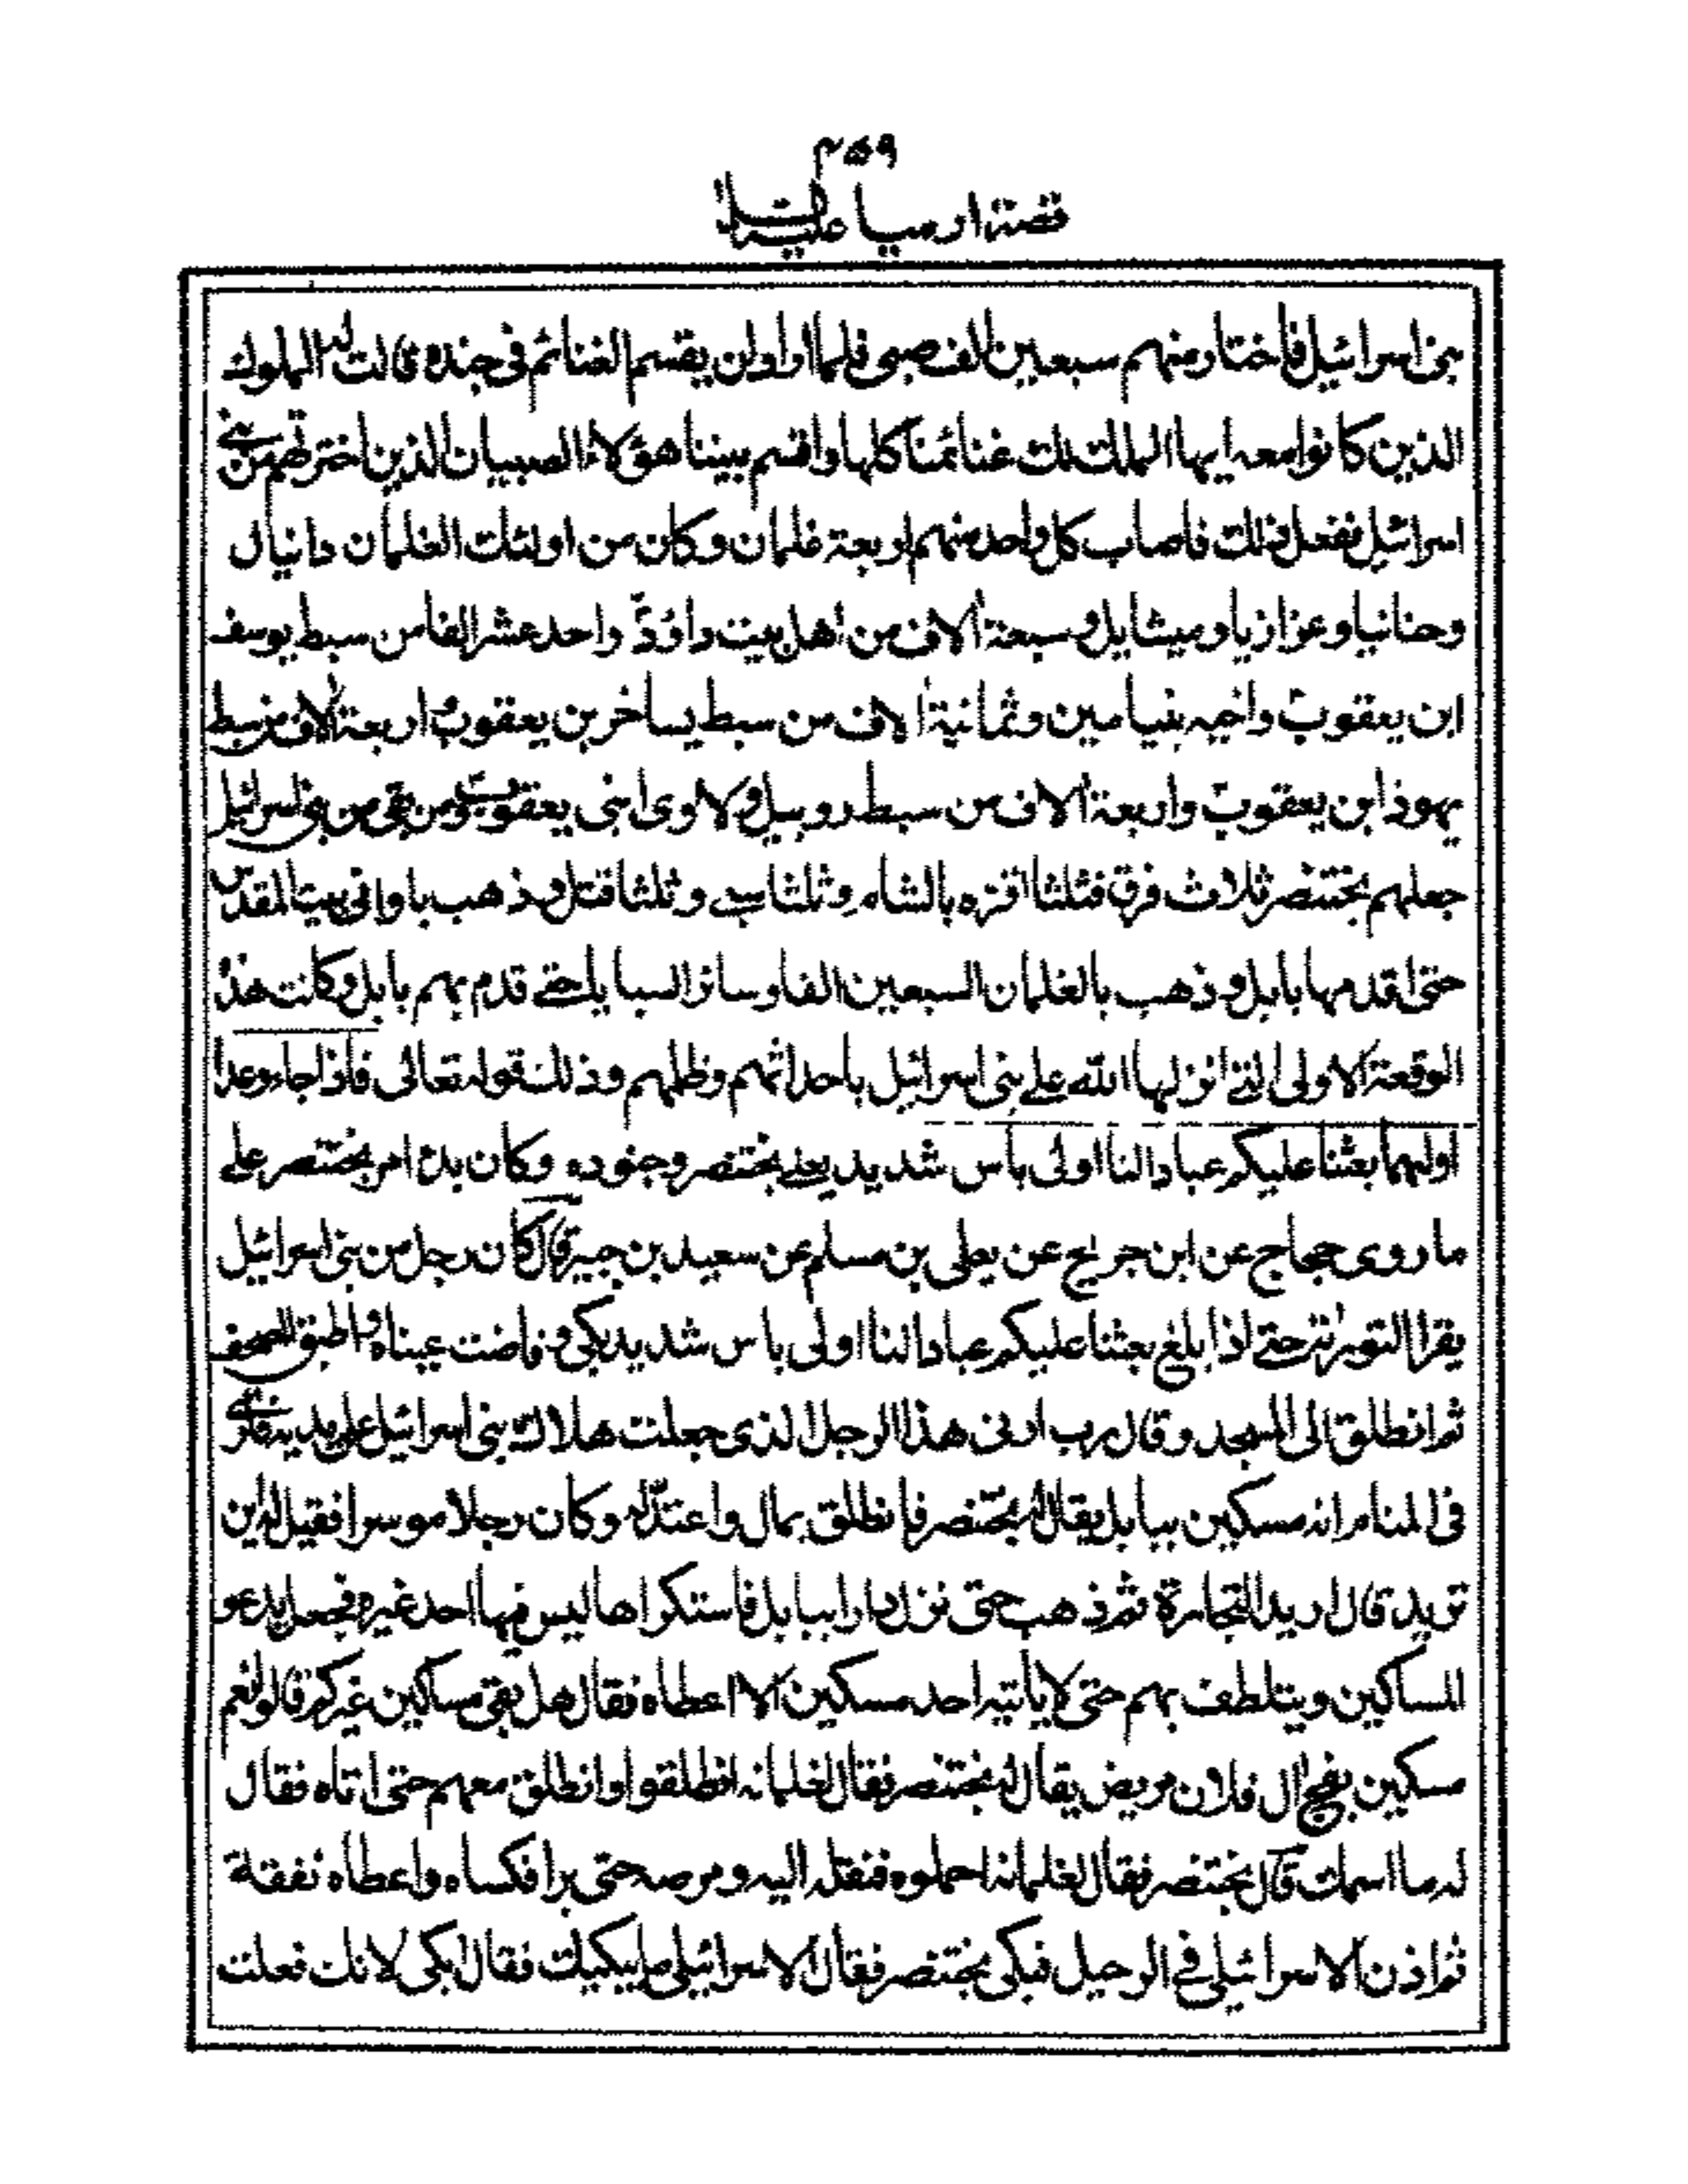 ٣٥٩
قصة ارميا عليه السلام
بنى اسرائيل فاختار منهم سبعين الف صبى فلما اراد ان يقسم الغنائم فى جنده قالت له الملوك
الذين كانوا معه ايها الملك لك غنائمنا كلها واقسم بيننا هؤلاء الصبيان الذين اخترتهم من بنى
اسرائيل ففعل ذلك فاصاب كل واحد منهم اربعة غلمان وكان من اولئك الغلمان دانيال
وحنانيا وعزازيا وميشايل وسبعة آلاف من اهل بيت داؤد واحد عشر الفا من سبط يوسف
ابن يعقوب واخيه بنيامين وثمانية آلاف من سبط يساخر بن يعقوب واربعة آلاف من سبط
يهوذا بن يعقوب واربعة آلاف من سبط روبيل ولاوى ابنى يعقوب ومن بقى من بنى اسرائيل
جعلهم بختنصر ثلاث فرق فثلثا اقره بالشام وثلثا سبى وثلثا قتل وذهب باوانى بيت المقدس
حتى اقدمها بابل وذهب بالغلمان السبعين الفا وسائر السبايا حتى قدم بهم بابل وكانت هذه
الوقعة الاولى التى انزلها الله على بنى اسرائيل باحداثهم وظلمهم وذلك قوله تعالى فاذا جاء وعد
اوليهما بعثنا عليكم عبادا لنا اولى باس شديد يعنى بختنصر وجنوده وكان بدء امر بختنصر على
ما روى حجاج عن ابن جريج عن يعلى بن مسلم عن سعيد بن جبير قال كان رجل من بنى اسرائيل
يقرا التورٰية حتى اذا بلغ بعثنا عليكم عبادا لنا اولى باس شديد بكى وفاضت عيناه واطبق المصحف
ثم انطلق الى المسجد وقال رب ارنى هذا الرجل الذى جعلت هلاك بنى اسرائيل على يديه فارى
فى المنام انه مسكين ببابل يقال له بختنصر فانطلق بمال واعتد له وكان رجلا موسرا فقيل له اين
تريد قال اريد التجارة ثم ذهب حتى نزل دارا ببابل فاستكراها ليس فيها احد غيره فجعل يدعو
المساكين ويتلطف بهم حتى لا يأتيه احد مسكين الا اعطاه فقال هل بقى مساكين غيركم قالوا نعم
مسكين بفج ال فلان مريض يقال له بختنصر فقال لغلمانه انطلقوا وانطلق معهم حتى اتاه فقال
له ما اسمك قال بختنصر فقال لغلمانه احملوه فنقله اليه ومرضه حتى برا فكساه واعطاه نفقة
ثم اذن الاسرائيلى فى الرحيل فبكى بختنصر فقال الاسرائيلى ما يبكيك فقال ابكى لانك فعلت